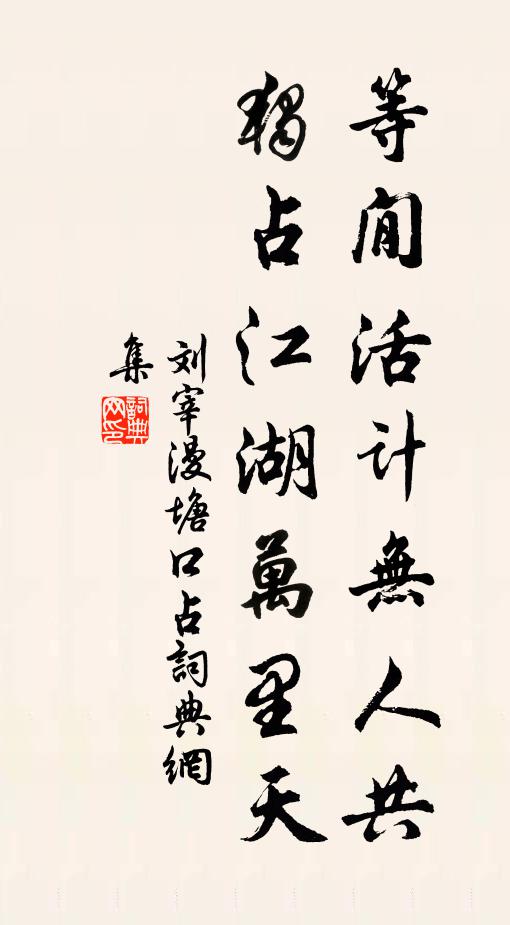 等閒活计無人共
獨占江湖萬里天
刘宰漫塘口占詞典網
集
詞典
网印